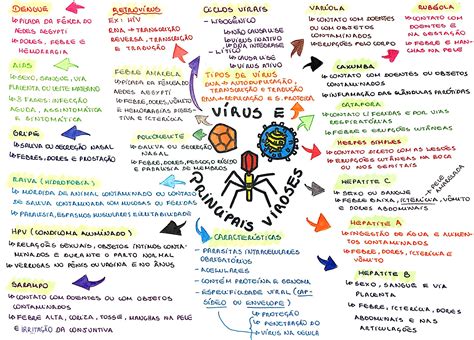 DENGUE
↳ PICADA DA FÊMEA DO AEDES AEGYPTI
↳ DORES, FEBRE E HEMORRAGIA
AIDS
↳ SEXO, SANGUE, VIA PLACENTA OU LEITE MATERNO
↳ 3 FASES: INFECÇÃO AGUDA, ASSINTOMÁTICA E SINTOMÁTICA
GRIPE
↳ SALIVA OU SECREÇÃO NASAL
↳ FEBRES, DORES E PROSTAÇÃO
RETROVÍRUS
EX: HIV
RNA → TRANSCRIÇÃO REVERSA, TRANSCRIÇÃO E TRADUÇÃO
FEBRE AMARELA
↳ PICADA FÊMEA AEDES AEGYPTI
↳ FEBRE, DORES, VÔMITO E HEMORRAGIAS
E ICTERÍCIA
POLIOMIELITE
↳ SALIVA OU SECREÇÃO NASAL
↳ FEBRE, DORES, PESCOÇO RÍGIDO E PARALISIA DE MEMBROS
CICLOS VIRAIS
- LISOGÊNICO
↳ NÃO CAUSA LISE
↳ VÍRUS INATIVO
↳ DNA INTEGRASE
- LÍTICO
↳ CAUSA LISE
↳ VÍRUS ATIVO
TIPOS DE VÍRUS
DNA → AUTODUPLICAÇÃO, TRANSCRIÇÃO E TRADUÇÃO
RNA → REPLICAÇÃO E S. PROTEICA
VÍRUS E PRINCIPAIS VIROSES
VARÍOLA
↳ CONTATO COM DOENTES OU COM OBJETOS CONTAMINADOS
↳ ERUPÇÕES PELO CORPO
RUBÉOLA
↳ CONTATO COM DOENTES E NA GESTAÇÃO
↳ FEBRE E MANCHAS NA PELE
CAXUMBA
↳ CONTATO COM DOENTES OU OBJETOS CONTAMINADOS
↳ INFLAMAÇÃO DAS GLÂNDULAS PARÓTIDAS
CATAPORA
↳ CONTATO C/ FERIDAS E POR VIAS RESPIRATÓRIAS
↳ FEBRE E ERUPÇÕES CUTÂNEAS
HERPES SIMPLES
↳ CONTATO DIRETO COM AS LESÕES
↳ ERUPÇÕES CUTÂNEAS NA BOCA OU NOS GENITAIS
HEPATITE C
↳ SEXO OU SANGUE
↳ FEBRE BAIXA, ICTERÍCIA, VÔMITO E DORES ABDOMINAIS
→ PELE AMARELADA
HEPATITE A
↳ INGESTÃO DE ÁGUA E ALIMENTOS CONTAMINADOS
↳ FEBRE, DORES, ICTERÍCIA E VÔMITO
HEPATITE B
↳ SEXO, SANGUE E VIA PLACENTA
↳ FEBRE, ICTERÍCIA, DORES ABDOMINAIS E NAS ARTICULAÇÕES
RAIVA (HIDROFOBIA)
↳ MORDIDA DE ANIMAL CONTAMINADO OU CONTATO DE SALIVA CONTAMINADA COM MUCOSAS OU FERIDAS
↳ PARALISIA, ESPASMOS MUSCULARES E IRRITABILIDADE
HPV (CONDILOMA ACUMINADO)
↳ RELAÇÕES SEXUAIS, OBJETOS ÍNTIMOS CONTAMINADOS E DURANTE O PARTO NORMAL
↳ VERRUGAS NO PÊNIS OU VAGINA E NO ÂNUS
SARAMPO
↳ CONTATO COM DOENTES OU COM OBJETOS CONTAMINADOS
↳ FEBRE ALTA, CORIZA, TOSSE, MANCHAS NA PELE E IRRITAÇÃO DA CONJUNTIVA
CARACTERÍSTICAS
- PARASITAS INTRACELULARES OBRIGATÓRIOS
- ACELULARES
- CONTÉM PROTEÍNA E GENOMA
- ESPECIFICIDADE VIRAL (CAPSÍDEO OU ENVELOPE)
↳ PROTEÇÃO
↳ PENETRAÇÃO DO VÍRUS NA CÉLULA